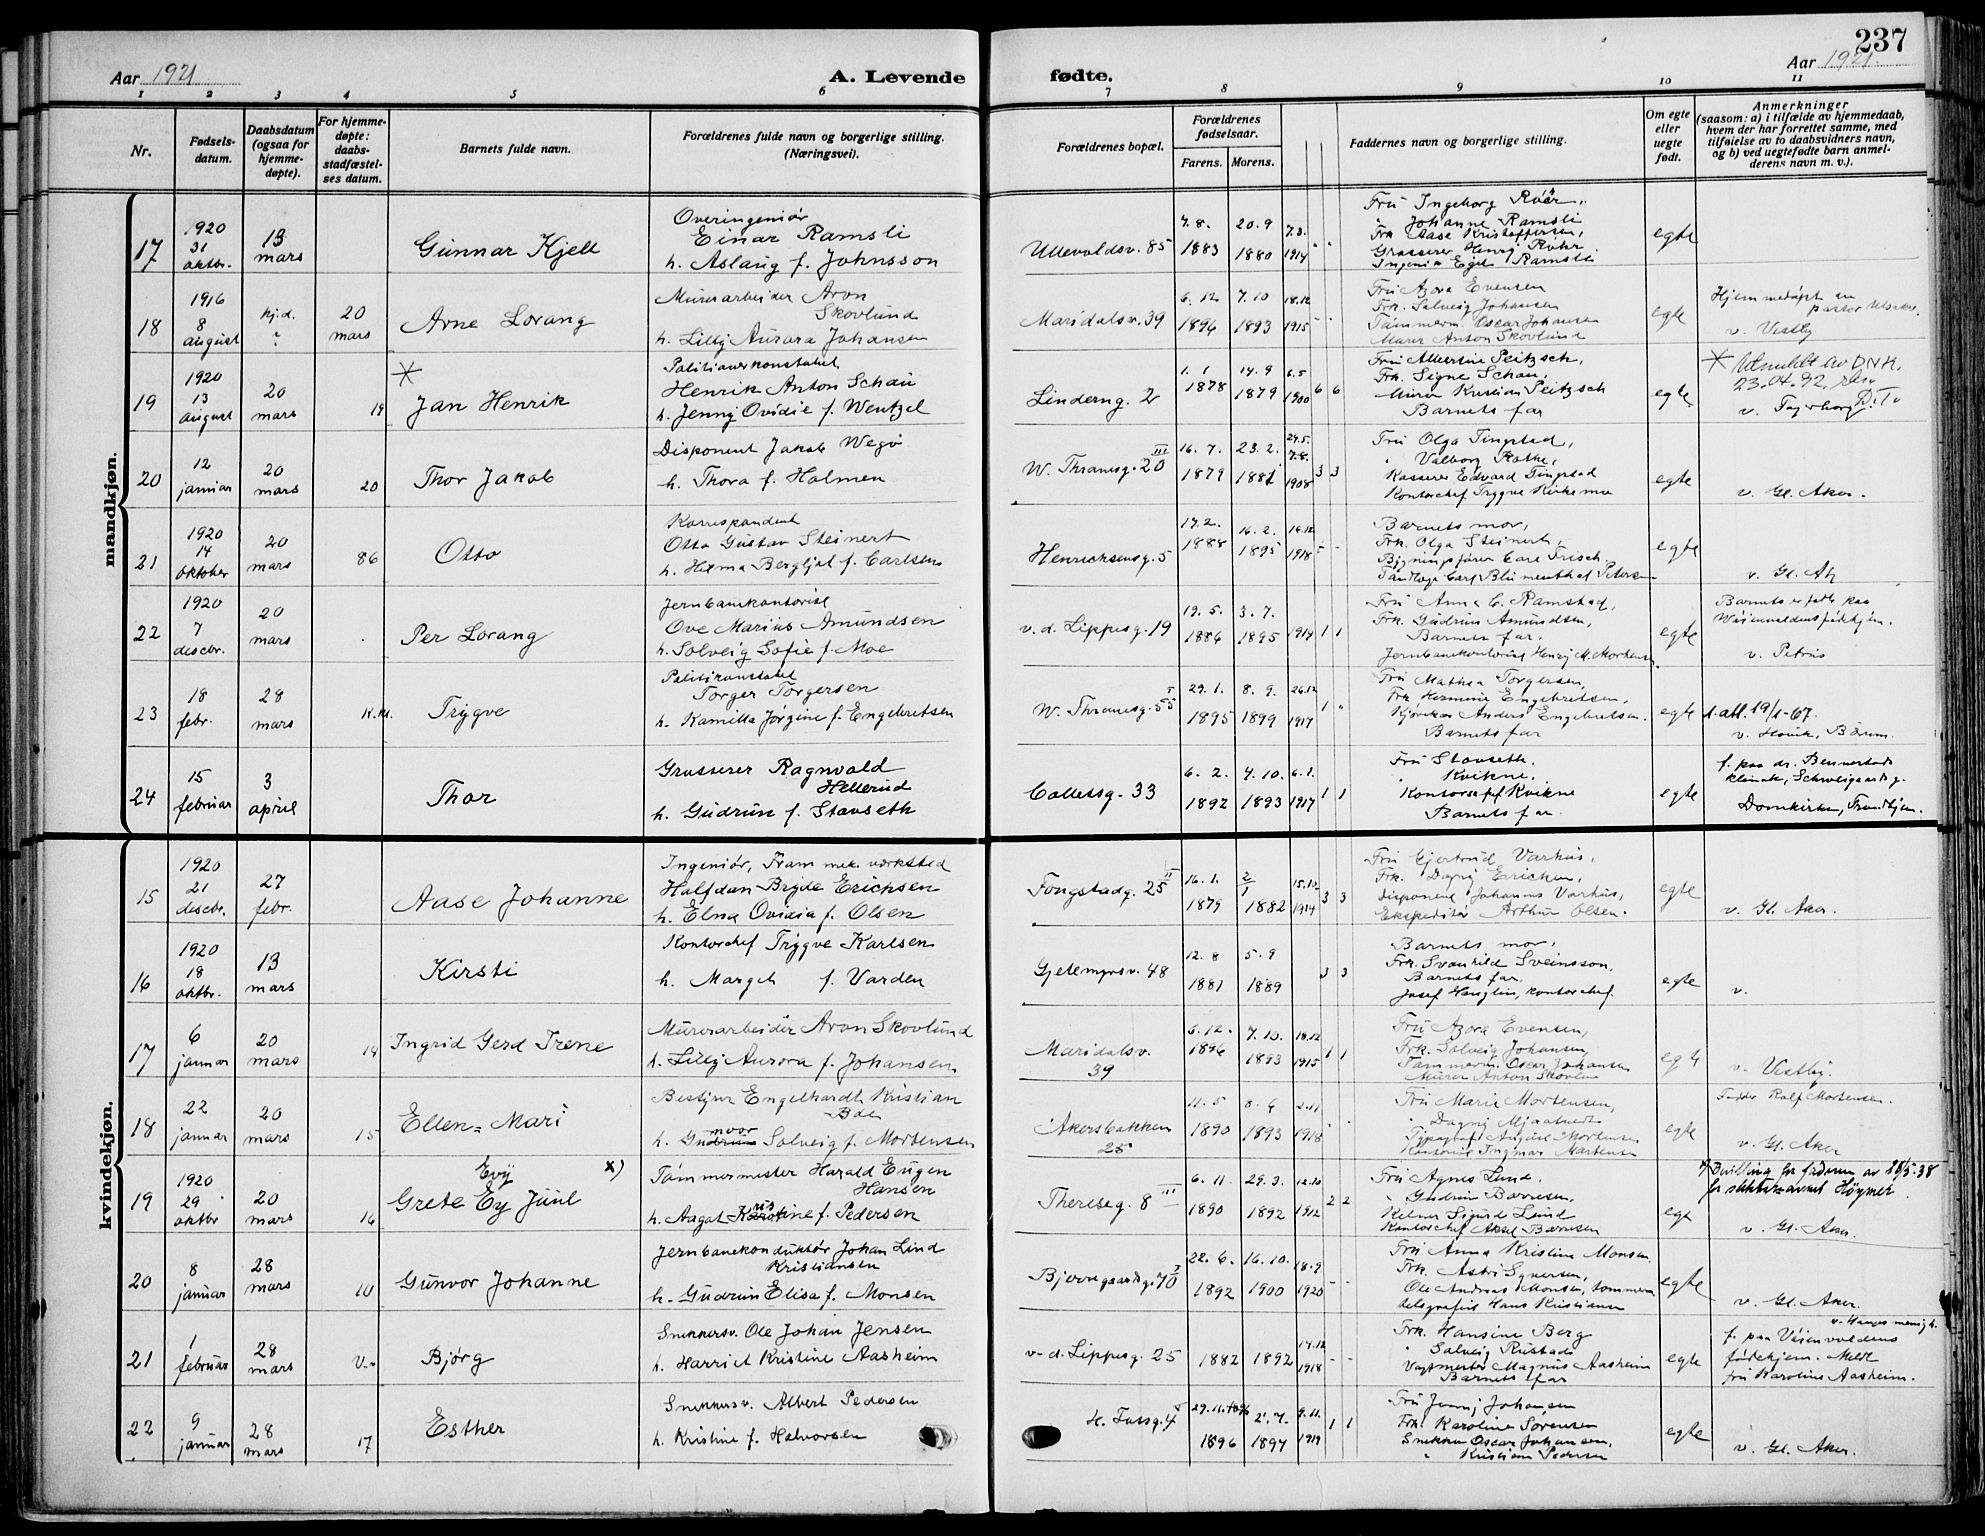 237
Aar 1921
A. Levende
fødte.
Aar 1921.
1 2 3 4 5 6 7 8 9 10 11
Nr.
Fødselsdatum.
Daabsdatum (ogsaa for hjemmedøpte).
For hjemmedøpte: daabsstadfæstelses datum.
Barnets fulde navn.
Forældrenes fulde navn og borgerlige stilling. (Næringsvei).
Forældrenes bopæl.
Forældrenes fødselsaar.
Farens. Morens.
Faddernes navn og borgerlige stilling.
Om egte eller uegte født.
Anmerkninger (saasom: a) i tilfælde av hjemmedaab, hvem der har forrettet samme, med tilføielse av to daabsvidners navn, og b) ved uegtefødte barn anmelderens navn m. v.).
mandkjøn.
17
1920 31 oktbr.
13 mars
Gunnar Kjell
Overingeniør
Einar Ramsli
h. Aslaug f. Johnsson
Ullevoldsv. 85
7.8. 1883
20.9 1880
7.3. 1914
Fru Ingeborg Röer,
" Johanne Ramsli
Frk Aase Kristoffersen,
Grosserer Henry Röhr
Ingeniør Egil Ramsli
egte
18
1916 8 august
hj.d.
20 mars
Arne Lorang
Murerarbeider Aron
Skovlund
h. Lilly Aurora Johansen
Maridalsv. 39
6.12 1896
7.10 1893
18.12 1915
Fru Azora Evensen
Frk. Solveig Johansen
Tømmerm. Oscar Johansen
Murer Anton Skovlund
egte
Hjemmedøpt av
pastor
v. Vestby
19
1920 13 august
20 mars
19
Jan Henrik
Politioverkonstabel
Henrik Anton Schau
h. Jenny Ovidie f. Wentzel
Linderng. 2
1.1 1878
14.9 1879
6.5 1900
6 6
Fru Albertine Peitzsch,
Frk. Signe Schau,
Murer Kristian Peitzsch
Barnets far
egte
* Utmeldt av DNK.
23.04.92
20
12 januar
20 mars
20
Thor Jakob
Disponent Jakob Wegø
h. Thora f. Holmen
W. Thranesg. 20 III
16.7. 1879
23.2. 1881
1908
3 3
Fru Olga Tingstad,
" Valborg Rothe,
Kasserer Edvard Tingstad
Kontorchef Trygve Kirkemo
egte
v. Gl. Aker.
21
1920 14 oktober
20 mars
86
Otto
Korrespondent
Otto Gustav Steinert
h. Helma Bergljot f. Carlsen
Henrichsensg. 5
17.2. 1888
16.2. 1895
16.12 1918
Barnets mor,
Frk. Olga Steinert,
Bygningsfører Care Frisch.
Tandlæge Carl Blumenthal Petersen
egte
v. Gl. Ak
22
1920 7 desebr.
20 mars
Per Lorang
Jernbanekontorist
Ove Marius Amundsen
h. Solveig Sofie f. Moe
v. d. Lippesg. 19
19.5. 1886
3.7. 1895
1914
1 1
Fru Anna C. Ramstad,
Frk. Gudrun Amundsen,
Barnets far.
Jernbanekontorist Henry M. Mortensen
egte
Barnet er født paa
v. Petrus
23
18 febr.
28 mars
K.M.
Trygve
Politikonstabel
Torger Torgersen
h. Kamilla Jørgine f. Engebretsen
W. Thranesg. 55
29.1. 1895
8.9. 1899
26.12 1917
1
Fru Mathea Torgersen,
Frk Hermine Engebretsen,
Anders Engebretsen.
Barnets far
egte
1. att. 19/1-67.
v. Høvik, Bærum.
24
15 februar
3 april
Thor
Grosserer Ragnvald
Hellerud
h. Gudrun f. Stavseth
Colletsg. 33
6.2. 1892
4.10. 1893
6.1. 1917
1 1
Fru Stavseth.
" Kvikne.
Kontorchef Kvikne
Barnets far.
egte
f. paa dr. Bennerstads
klinik, Schweigaardsg.
Domkirken, Trondhjem.
kvindekjøn.
15
1920 21 desebr.
27 febr.
Aase Johanne
Ingeniør, Fram mek. værksted
Halfdan Bryde Erichsen
h. Elna Ovidia f. Olsen
Fougstadg. 25 II
16.1. 1879
2/1 1882
15.10 1914
3 3
Fru Gjertrud Varhus,
Frk. Dagny Ericksen,
Disponent Johannes Varhus,
Ekspeditør Arthur Olsen.
egte
v. Gl. Aker.
16
1920 18 oktbr.
13 mars
Kirsti
Kontorchef Trygve Karlsen
h. Margit f. Varden
Gjetemyrsv. 48
12.8 1881
5.9 1889
3 3
Barnets mor,
Frk. Svanhild Sveinsson,
Barnets far,
Josef Hauglin, kontorchef.
egte
v.
17
6 januar
20 mars
14
Ingrid Gerd Irene
Murerarbeider Aron Skovlund
h. Lilly Aurora f. Johansen
Maridalsv.
39
6.12. 1896
7.10. 1893
18.12 1915
1 1
Fru Azora Evensen,
Frk. Solveig Johansen
Tømmerm. Oscar Johansen
Murer Anton Skovlund
egte
v. Vestby.
18
22 januar
20 mars
15
Ellen=Mari
Bestyrer Engelhardt Kristian
Boe
h. Gudrun Solveig f. Mortensen
Akersbakken
25
11.5 1890
8.6 1893
2.11 1918
Fru Marie Mortensen,
" Dagny Mjaatvedt
Typograf August Mortensen
Kontorist Ingmar Mortensen
egte
Fadder Rolf Mortensen.
v. Gl. Aker
19
1920 29 oktbr
20 mars
16
Evy x)
Grete Ey Juul
Tømmermester Harald Eugen
Hansen
h. Aagot Kirstine f. Pedersen
Thereseg. 8 III
6.11. 1890
29.3. 1892
12.10 1912
2 2
Fru Agnes Lund.
" Gudrun Barnesen,
Kelner Sigurd Lund
Kontorchef Aksel Barnesen
egt
x) Tvilling
v. Gl. Aker.
20
8 januar
28 mars
10
Gunvor Johanne
Jernbanekonduktør Johan Lind
Kristiansen
h. Gudrun Elisa f. Monsen
Bjerregaardsg. 70
22.6. 1892
16.10. 1900
18.9 1920
Fru Anna Kristine Monsen
Frk. Astri Syversen,
Ole Andreas Monsen, tømmerm
Telegrafist Hans Kristiansen
egte
v. Gl. Aker.
21
1 februar
28 mars
Bjørg
Snekkersv. Ole Johan Jensen
h. Harriet Kristine Aasheim
v. d. Lippesg. 25
1882
1892
14.12 1918
Frk. Hansine Berg
" Solveig Rustad
Vagtmester Magnus Aasheim
Barnets far
egte
f. paa Væienvoldens
fødehjem. Meldt
fru Karoline Aasheim.
22
9 januar
28 mars
17
Esther
Snekkersv. Albert Pedersen
h. Kristine f. Halvorsen
H. Tossg. 4
29.11. 1896
2.7. 1897
9.11. 1919
1 1
Fru Jenny Johansen
Frk. Karoline Sørensen
Snekker Oscar Johansen,
" Kristian Pedersen
egte
v. Gl. Aker.